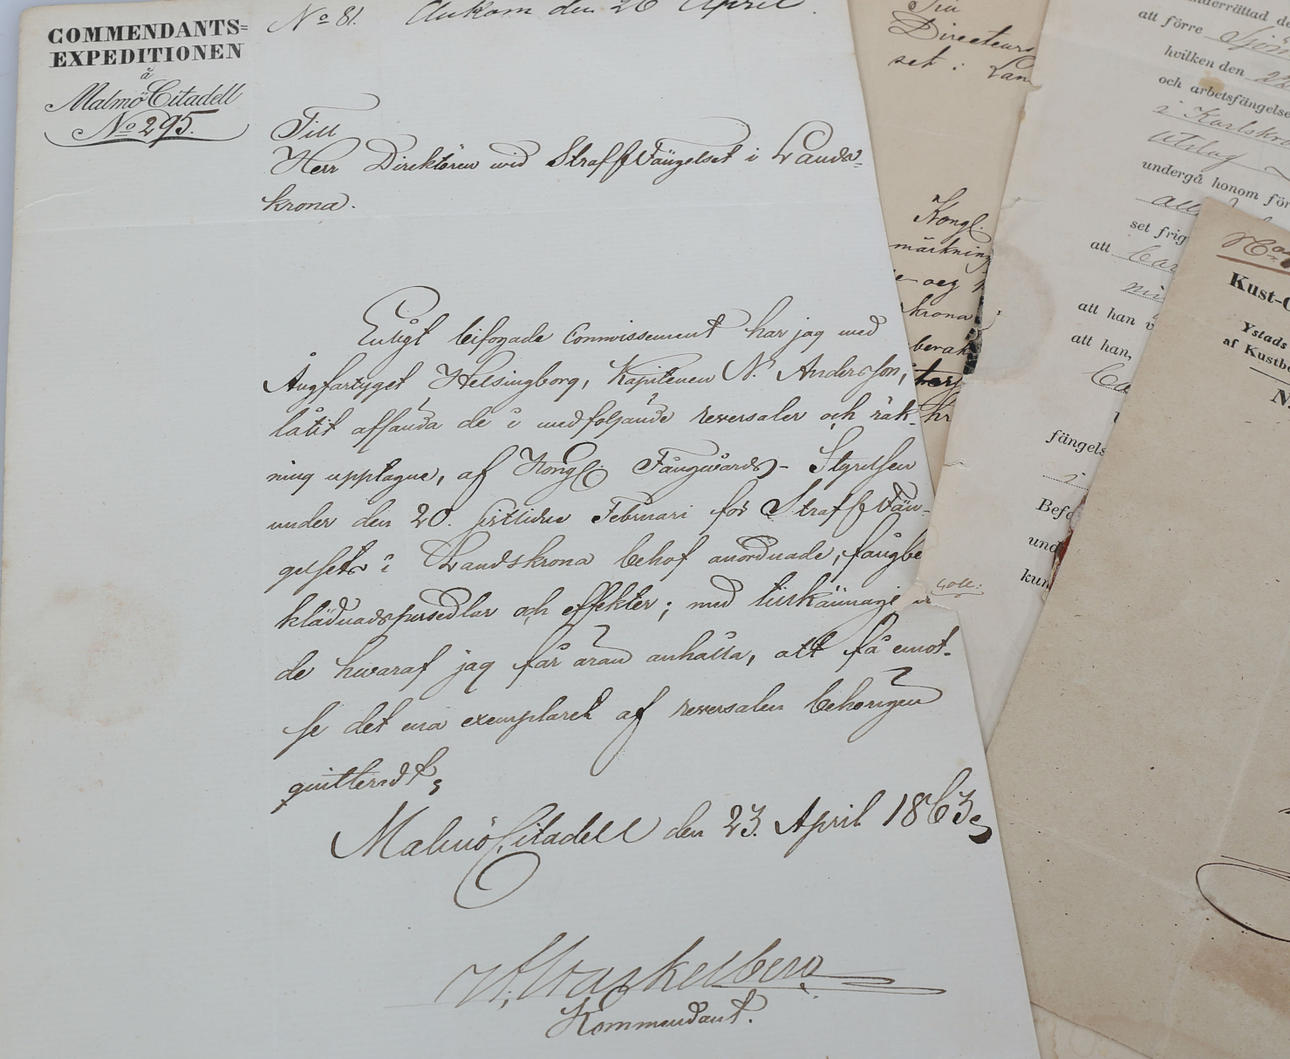 COMMENDANTS=
EXPEDITIONEN
å
Malmö Citadell
No 295.
No 81. Ankom den 26 April
Till
Herr Direktören wid StraffFängelset i Lands-
krona.
Enligt bifogade Connoissement har jag med
Ångfartyget Helsingborg, Kapitenen N. Andersson,
låtit afsända de i medföljande reversaler och räk-
ning upptagne, af Kongl Fångvårds-Styrelsen
under den 20. sistlidne Februari för StraffFän-
gelsets i Landskrona behof anordnade, fångbe
klädnadspersedlar och effekter; med
de hwaraf jag får äran anhålla, att få emot-
se det ena exemplaret af reversalen behörigen
quitteradt,
Malmö Citadell den 23. April 1863,
Kommendant.
Till
Directeurs
set i Lan
Kongl.
märknin
krona
berak
underrättad de
att förre Sjöm
hvilken den
och arbetsfängelse
i Karlskro
utslag
undergå honom för
set frig
att
att han
att han,
fängels
Befä
und
kun
Kust-
Ystads
af Kustbe
N